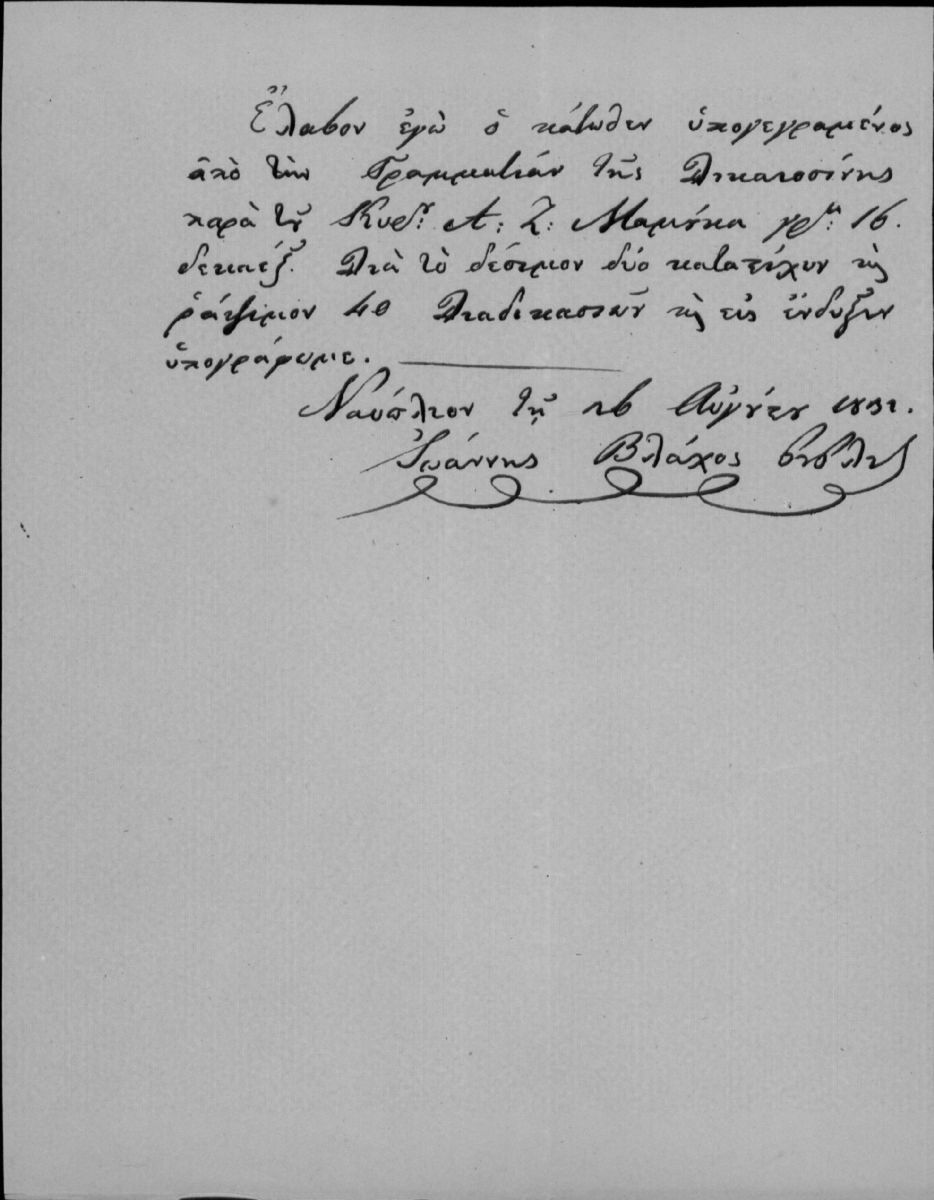 Ἔλαβον ἐγὼ ὁ κάτωθεν ὑπογεγραμένος
ἀπὸ τὴν Γραμματίαν τῆς Δικαιοσίνης
παρὰ τοῦ Κυρ: Α: Ζ: Μαμούκα γρ: 16.
δεκαέξ. Διὰ τὸ δέσιμον δύο καταστίχων κὶ
ράψιμον 40 Διαδικασιῶν κὶ εἰς ἔνδυξιν
ὑπογράφωμε.
Ναύπλιον τῇ 26 Αὐγούστου
Ἰωάννης Βλάχος